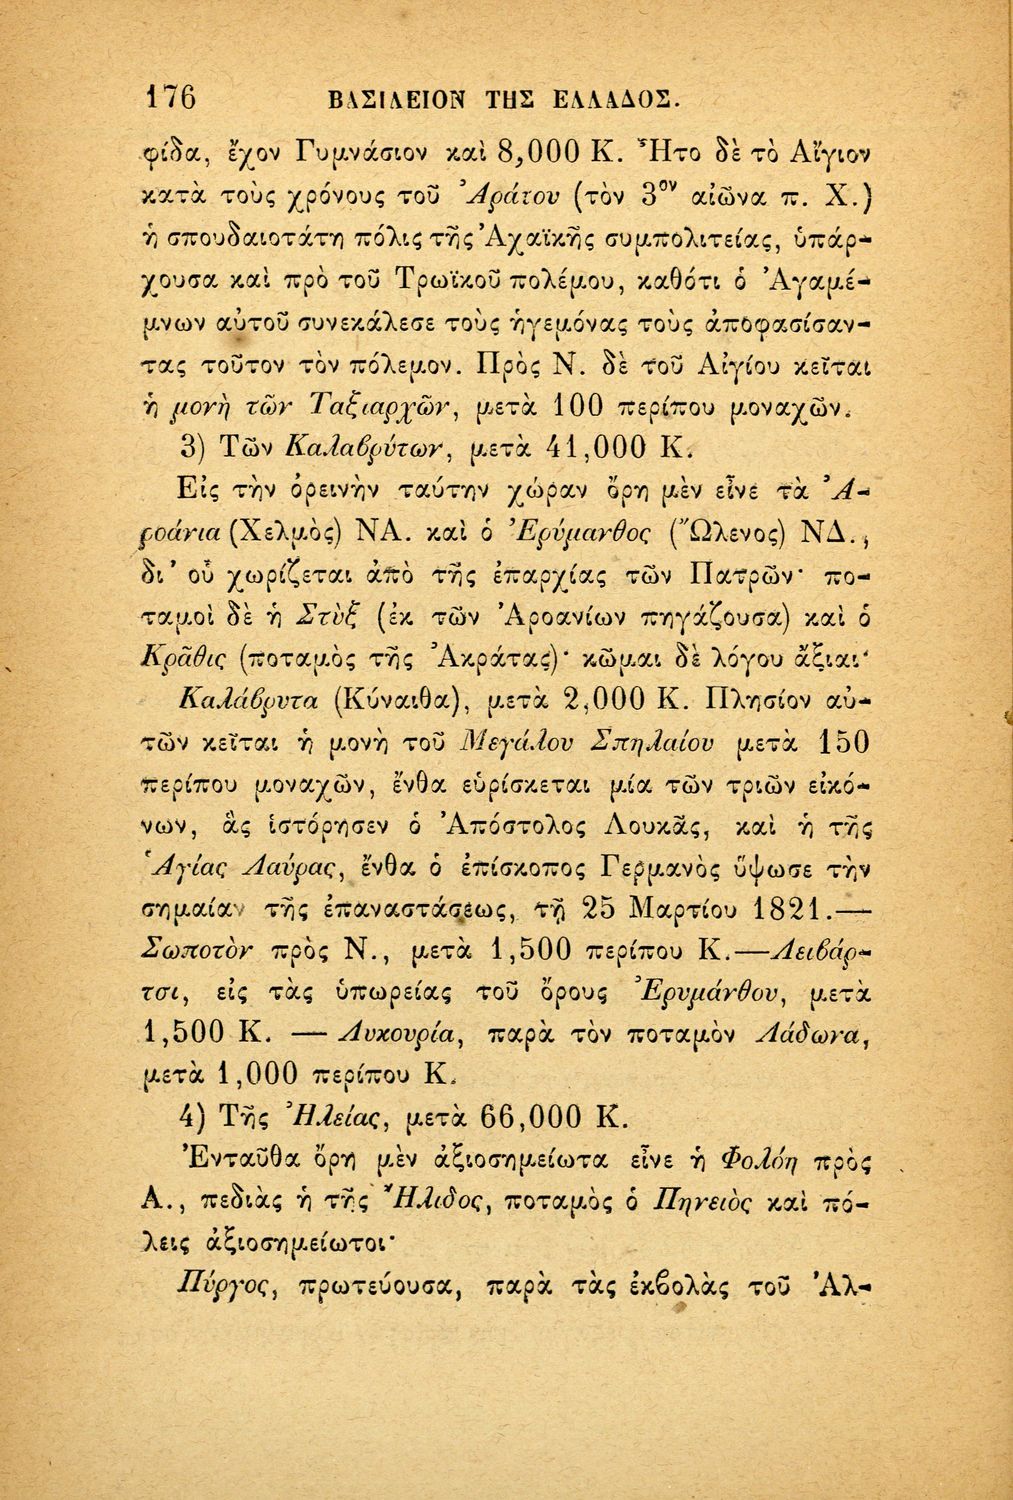 176 ΒΑΣΙΛΕΙΟΝ ΤΗΣ ΕΛΛΑΔΟΣ.
φίδα, ἔχον Γυμνάσιον καὶ 8,000 Κ. Ἦτο δὲ τὸ Αἴγιον
κατὰ τοὺς χρόνους τοῦ Ἀράτου (τὸν 3ον αἰῶνα π. Χ.)
ἡ σπουδαιοτάτη πόλις τῆς Ἀχαϊκῆς συμπολιτείας, ὑπάρ-
χουσα καὶ πρὸ τοῦ Τρωϊκοῦ πολέμου, καθότι ὁ Ἀγαμέ-
μνων αὐτοῦ συνεκάλεσε τοὺς ἡγεμόνας τοὺς ἀποφασίσαν-
τας τοῦτον τὸν πόλεμον. Πρὸς Ν. δὲ τοῦ Αἰγίου κεῖται
ἡ μονὴ τῶν Ταξιαρχῶν, μετὰ 100 περίπου μοναχῶν.
3) Τῶν Καλαβρύτων, μετὰ 41,000 Κ.
Εἰς τὴν ὀρεινὴν ταύτην χώραν ὄρη μὲν εἶνε τὰ Ἀ-
ροάνια (Χελμὸς) ΝΑ. καὶ ὁ Ἐρύμανθος (Ὤλενος) ΝΔ.,
δι’ οὗ χωρίζεται ἀπὸ τῆς ἐπαρχίας τῶν Πατρῶν· πο-
ταμοὶ δὲ ἡ Στὺξ (ἐκ τῶν Ἀροανίων πηγάζουσα) καὶ ὁ
Κρᾶθις (ποταμὸς τῆς Ἀκράτας)· κῶμαι δὲ λόγου ἄξιαι·
Καλάβρυτα (Κύναιθα), μετὰ 2,000 Κ. Πλησίον αὐ-
τῶν κεῖται ἡ μονὴ τοῦ Μεγάλου Σπηλαίου μετὰ 150
περίπου μοναχῶν, ἔνθα εὑρίσκεται μία τῶν τριῶν εἰκό-
νων, ἃς ἱστόρησεν ὁ Ἀπόστολος Λουκᾶς, καὶ ἡ τῆς
Ἁγίας Λαύρας, ἔνθα ὁ ἐπίσκοπος Γερμανὸς ὕψωσε τὴν
σημαίαν τῆς ἐπαναστάσεως, τῇ 25 Μαρτίου 1821.—
Σωποτὸν πρὸς Ν., μετὰ 1,500 περίπου Κ.—Λειβάρ-
τσι, εἰς τὰς ὑπωρείας τοῦ ὄρους Ἐρυμάνθου, μετὰ
1,500 Κ. — Λυκουρία, παρὰ τὸν ποταμὸν Λάδωνα,
μετὰ 1,000 περίπου Κ.
4) Τῆς Ἠλείας, μετὰ 66,000 Κ.
Ἐνταῦθα ὄρη μὲν ἀξιοσημείωτα εἶνε ἡ Φολόη πρὸς
Α., πεδιὰς ἡ τῆς Ἤλιδος, ποταμὸς ὁ Πηνειὸς καὶ πό-
λεις ἀξιοσημείωτοι·
Πύργος, πρωτεύουσα, παρὰ τὰς ἐκβολὰς τοῦ Ἀλ-